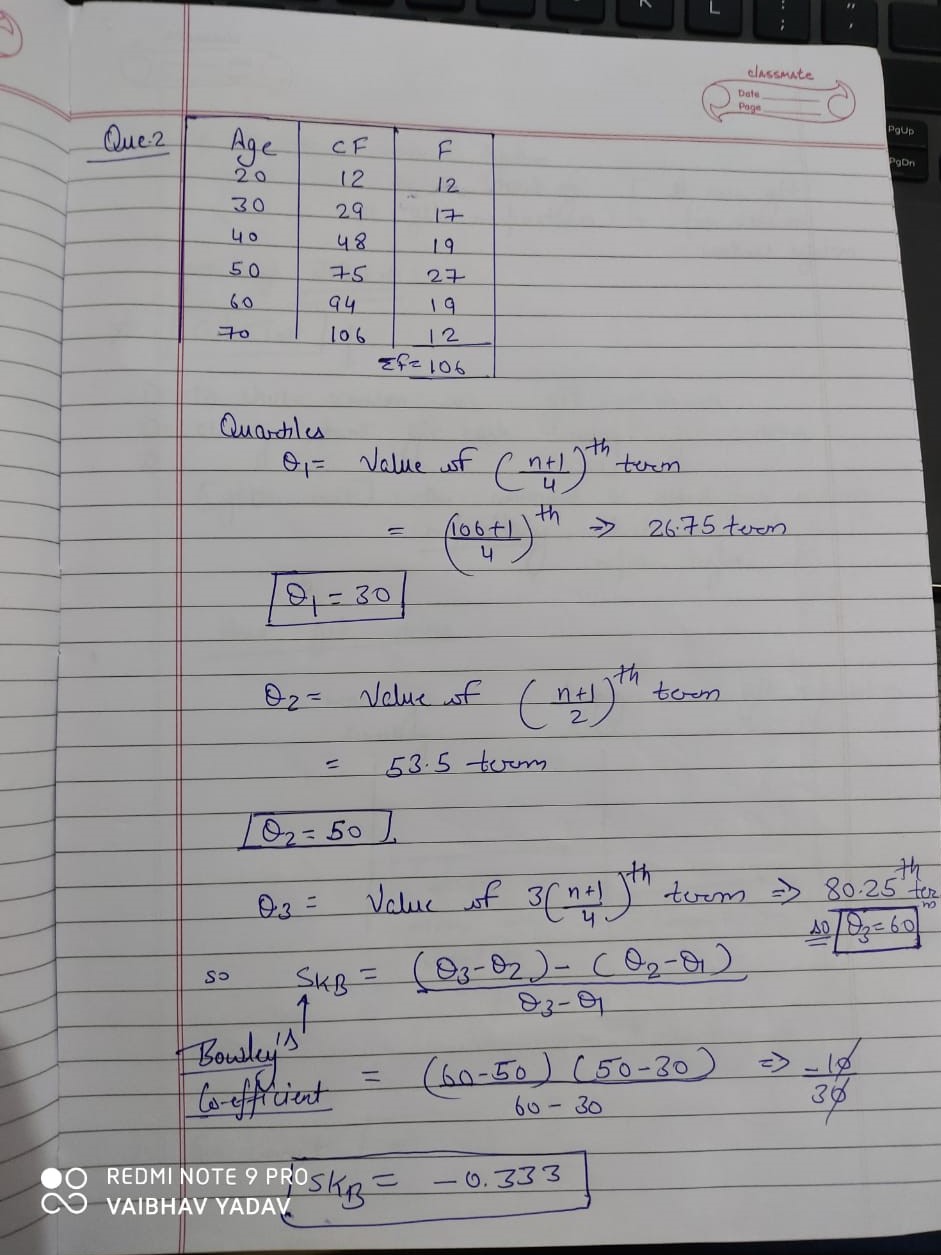 K L ; : " '
classmate
Date
Page
PgUp
PgDn
Que.2
Age CF F
20 12 12
30 29 17
40 48 19
50 75 27
60 94 19
70 106 12
Σf= 106
Quartiles
Q₁= Value of (n+1/4)th term
= (106+1/4)th ⇒ 26.75 term
Q₁ = 30
Q₂= Value of (n+1/2)th term
= 53.5 term
Q₂ = 50
Q₃ = Value of 3(n+1/4)th term ⇒ 80.25th term
so Q₃=60
so SKB = (Q₃-Q₂)-(Q₂-Q₁)/Q₃-Q₁
Bowley's
Co-efficient = (60-50) (50-30)/60-30 ⇒ -10/30
SKB = -0.333
REDMI NOTE 9 PRO
VAIBHAV YADAV